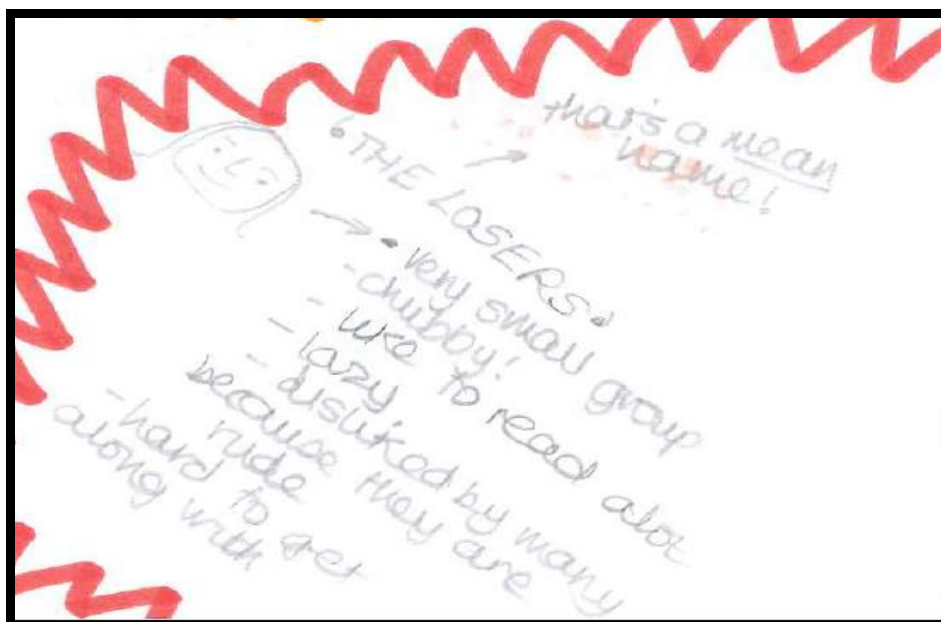 •THE LOSERS•
that's a mean
name!
• very small group
- chubby!
- like to read alot
- lazy
- disliked by many
because they are
rude
- hard to get
along with